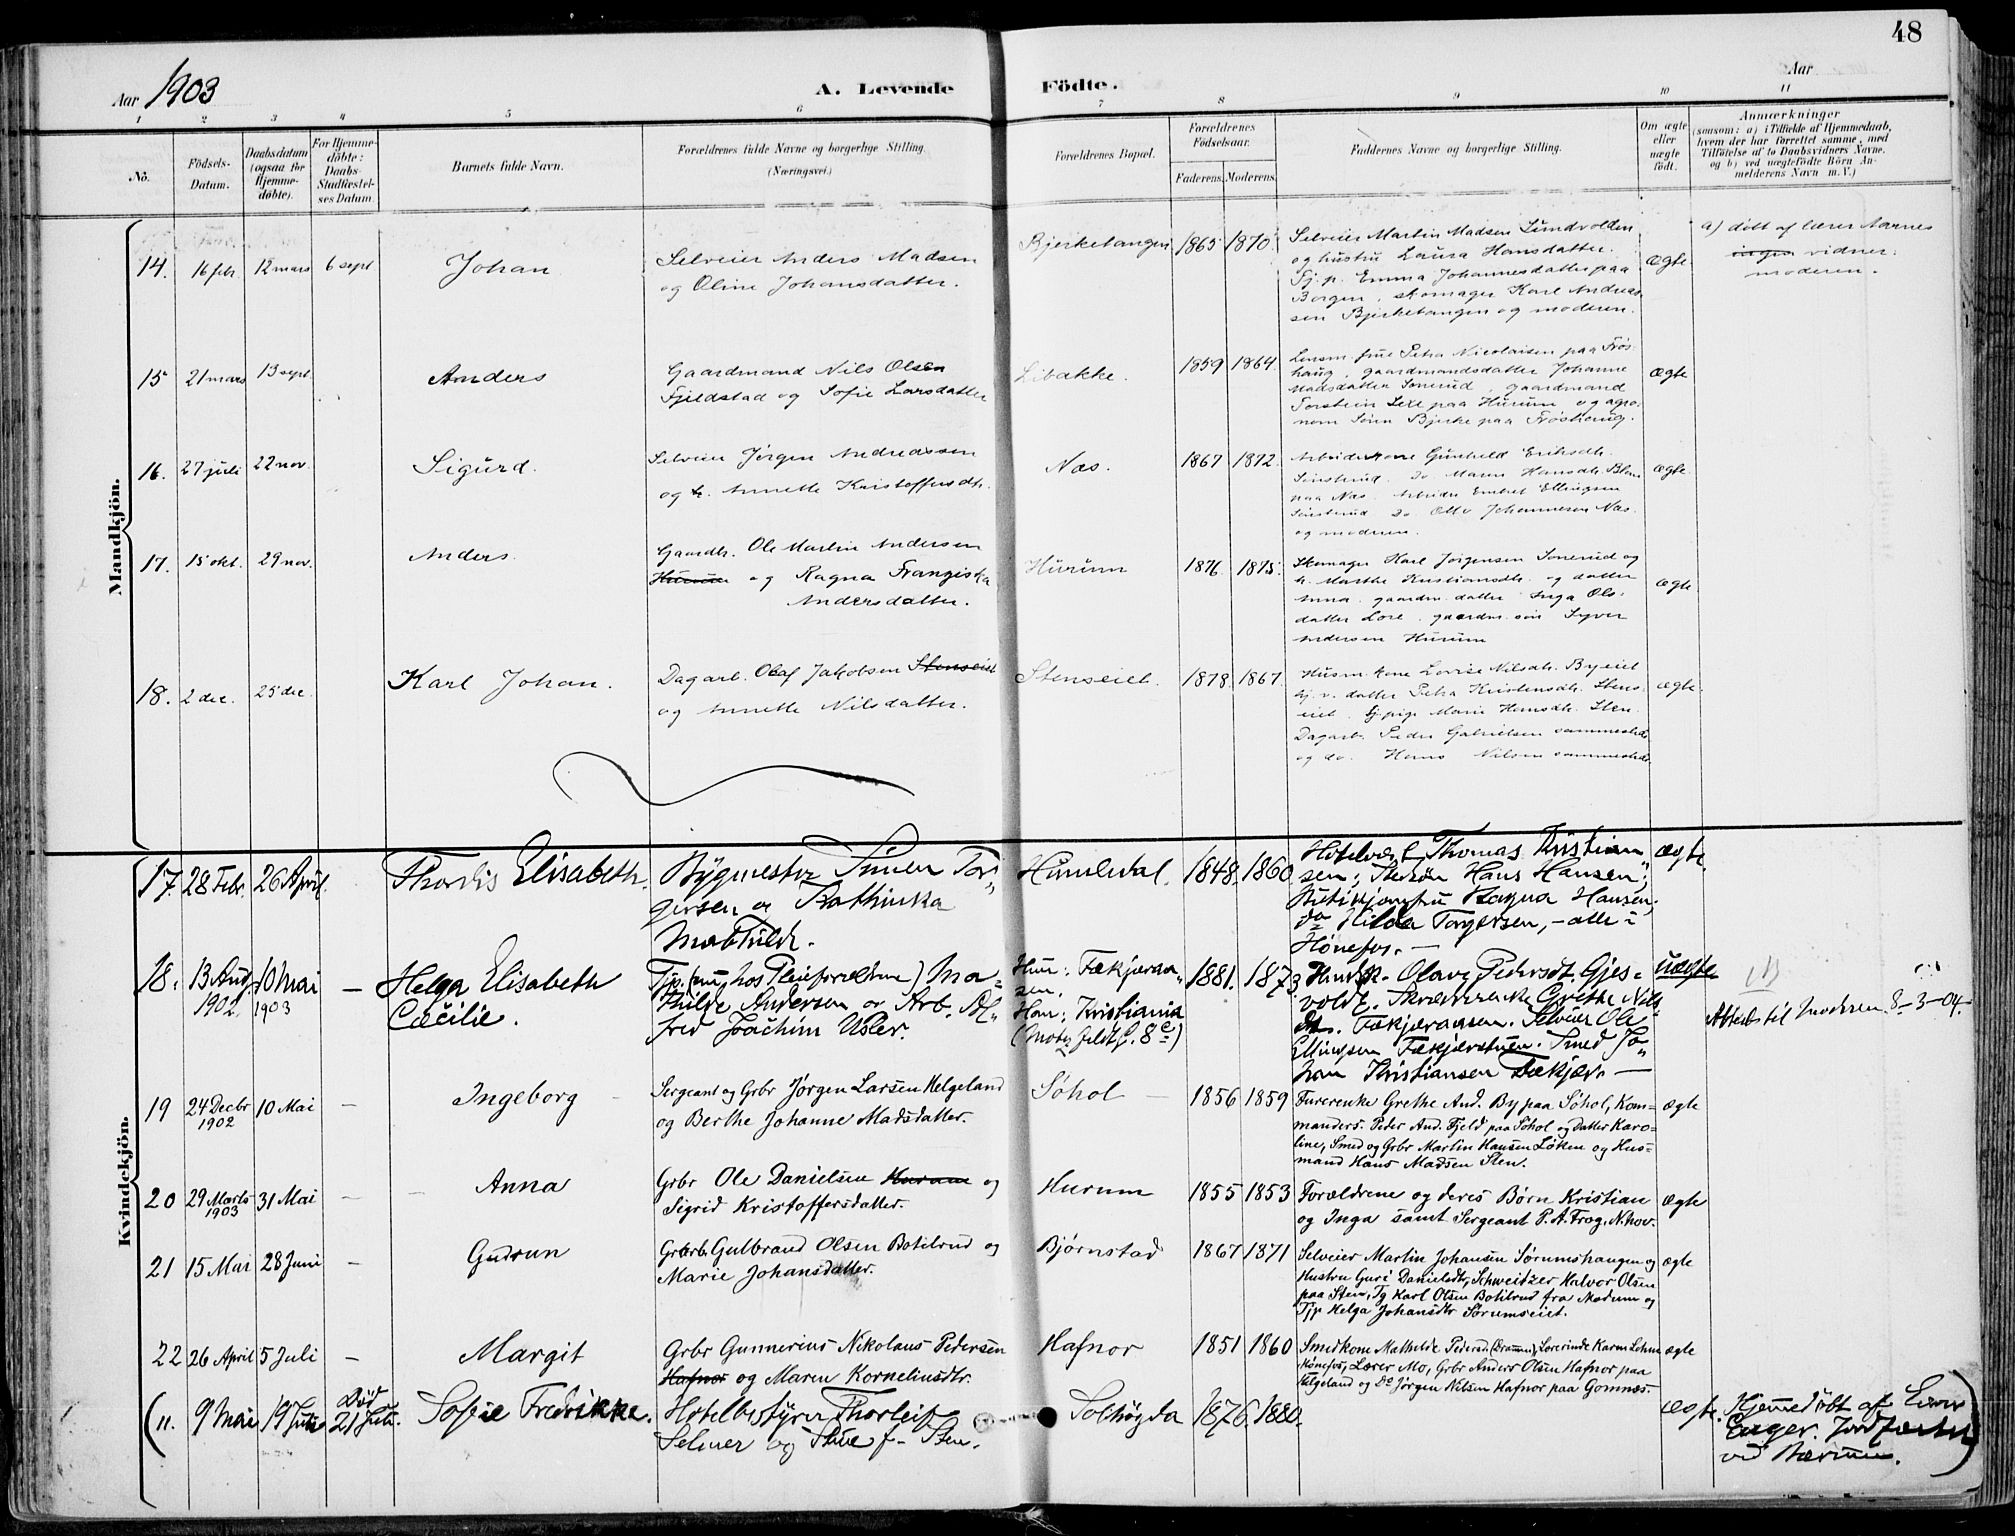 48
Aar 1903
A. Levende
Födte.
Aar
1 2 3 4 5 6 7 8 9 10 11
No.
Födsels-
Datum.
Daabsdatum
(ogsaa for
Hjemme-
döbte).
For Hjemme-
döbte:
Daabs-
Stadfæstel-
ses Datum.
Barnets fulde Navn.
Forældrenes fulde Navne og borgerlige Stilling.
(Næringsvei.)
Forældrenes Bopæl.
Forældrenes
Födselsaar.
Faderens. Moderens.
Faddernes Navne og borgerlige Stilling.
Om ægte
eller
uægte
födt.
Anmærkninger
(saasom: a) i Tilfælde af Hjemmedaab,
hvem der har forrettet samme, med
Tilföielse af to Daabsvidners Navne.
og b) ved uægtefödte Börn An-
melderens Navn m. V.)
Mandkjön.
14. 16 febr. 12 mars 6 sept Johan
Selveier Anders Madsen
og Oline Johansdatter.
Bjerketangen 1865 1870
Selveier Martin Madsen Lundvolden
og hustru Laura Hansdatter.
Tj. p. Emma Johannesdatter paa
Borgen, skomager Karl Andreas-
sen Bjerketangen og moderen.
ægte.
a) døbt af lærer Aarnes
ingen vidner.
moderen.
15 21 mars 13 sept. Anders
Gaardmand Nils Olsen
Fjeldstad og Sofie Larsdatter
Libakke. 1859 1864.
Lensm. frue Petra Nicolaisen paa Frøs-
haug, gaardmandsdatter Johanne
Madsdatter Sonerud, gaardmand
Torstein Lexe paa Hurum og agro-
nom Søren Bjerke paa Frøshaug.
ægte
16. 27 juli 22 nov. Sigurd.
Selveier Jørgen Andreassen
og h. Annette Kristoffersdtr.
Næs. 1867 1872.
Arbeiderkone Gunhild Eriksdtr.
paa Næs. Arbeider Embret Ellingsen
do. Otto Johannesen Næs
og moderen.
ægte.
17. 15 okt. 29 nov. Anders.
Gaardbr. Ole Martin Andersen
Hurum og Ragna Frangiska
Andersdatter.
Hurum 1876 1875.
Skomager Karl Jørgensen Sonerud og
h. Marthe Kristiansdtr. og datter
Anna. gaardm. datter Inga Ols-
datter Lore. gaardm. søn Syver
Andersen Hurum
ægte
18. 2 dec. 25 dec. Karl Johan.
Dagarb. Olaf Jakobsen Stenseiet
og Annette Nilsdatter.
Stenseiet. 1878. 1867.
Husm. kone Lovise Nilsdtr. Byeiet
Tj. p. datter Petra Kristensdtr. Stens-
eiet. Tj.pige Marie Hansdtr. Sten.
Dagarb. Peder Gabrielsen sammesteds
og do. Hans Nilsen sammesteds
ægte.
Kvindekjön.
17. 28 Febr. 26 April. Thordis Elisabeth.
Bygmester Simen Tor-
gersen og Kathinka
Mathilde.
Humledal. 1848. 1860
Hotelvært Thomas Kristian
sen; Hans Hansen;
Butikjomfru Ragna Hansen;
do Hilda Torgersen, - alle i
Hønefos. -
ægte
18. 13 Aug. 1902. 10 Mai 1903 - Helga Elisabeth
Cæcilie.
Tjp. (nu hos Pleieforældrene) Ma-
thilde Andersen og Arb. Al-
fred Joachim Osler.
Hun: Fækjæraa-
sen.
Han: Kristiania
1881. 1873.
Olava Pedersdt. Gjes-
vold. Grethe Nils-
dt. Fækjæraasen. Selveier Ole
Ellingsen Fækjærstuen. Smed Jo-
han Kristiansen Fækjær. -
uægte
til Moderen 8-3-04.
19 24 Decbr 1902 10 Mai - Ingeborg -
Sergeant og Grbr Jørgen Larsen Helgeland
og Berthe Johanne Madsdatter.
Søhol - 1856 1859
Furerenke Grethe And. By paa Søhol, Kom-
manders. Peder And. Fjeld paa Søhol og Datter Karo-
line, Smed og Grbr Martin Hansen Løken og Hus-
mand Hans Madsen Sten.
ægte
20 29 Marts 1903 31 Mai - - Anna
Grbr Ole Danielsen Hurum og
Sigrid Kristoffersdatter.
Hurum 1855 1853
Forældrene og deres Børn Kristian
og Inga samt Sergeant P. A. Frog, N.hov.
ægte
21 15 Mai 28 Juni - Gudrun
Grbrb. Gulbrand Olsen Botilrud og
Marie Johansdatter.
Bjørnstad 1867 1871
Selveier Martin Johansen Sørumshaugen og
Hustru Guri Danielsdtr, Schweitzer Halvor Olsen
paa Sten, Tg Karl Olsen Botilrud fra Modum og
Tjp Helga Johansdtr Sørumseiet.
ægte
22 26 April 5 Juli - Margit
Grbr Gunnerius Nikolaus Pedersen
Hafnor og Maren Korneliusdtr.
Hafnor 1851 1860
Smedkone Mathilde Pedersd (Drammen), Lærerinde Karen Lehne
Hønefos, Lærer Mo, Grbr Anders Olsen Hafnor paa
Helgeland og Do Jørgen Nilsen Hafnor paa Gomnæs.
ægte
( 11. 9 Mai 19 Juli Død 21 Juli. Sofie Fredrikke.
Hotelbestyrer Thorleif
Selmer og Frue f. Sten.
Solhøgda 1876. 1880.
ægte. Hjemmedøbt af
Enger. Jordfæstet
ved Bærum. )